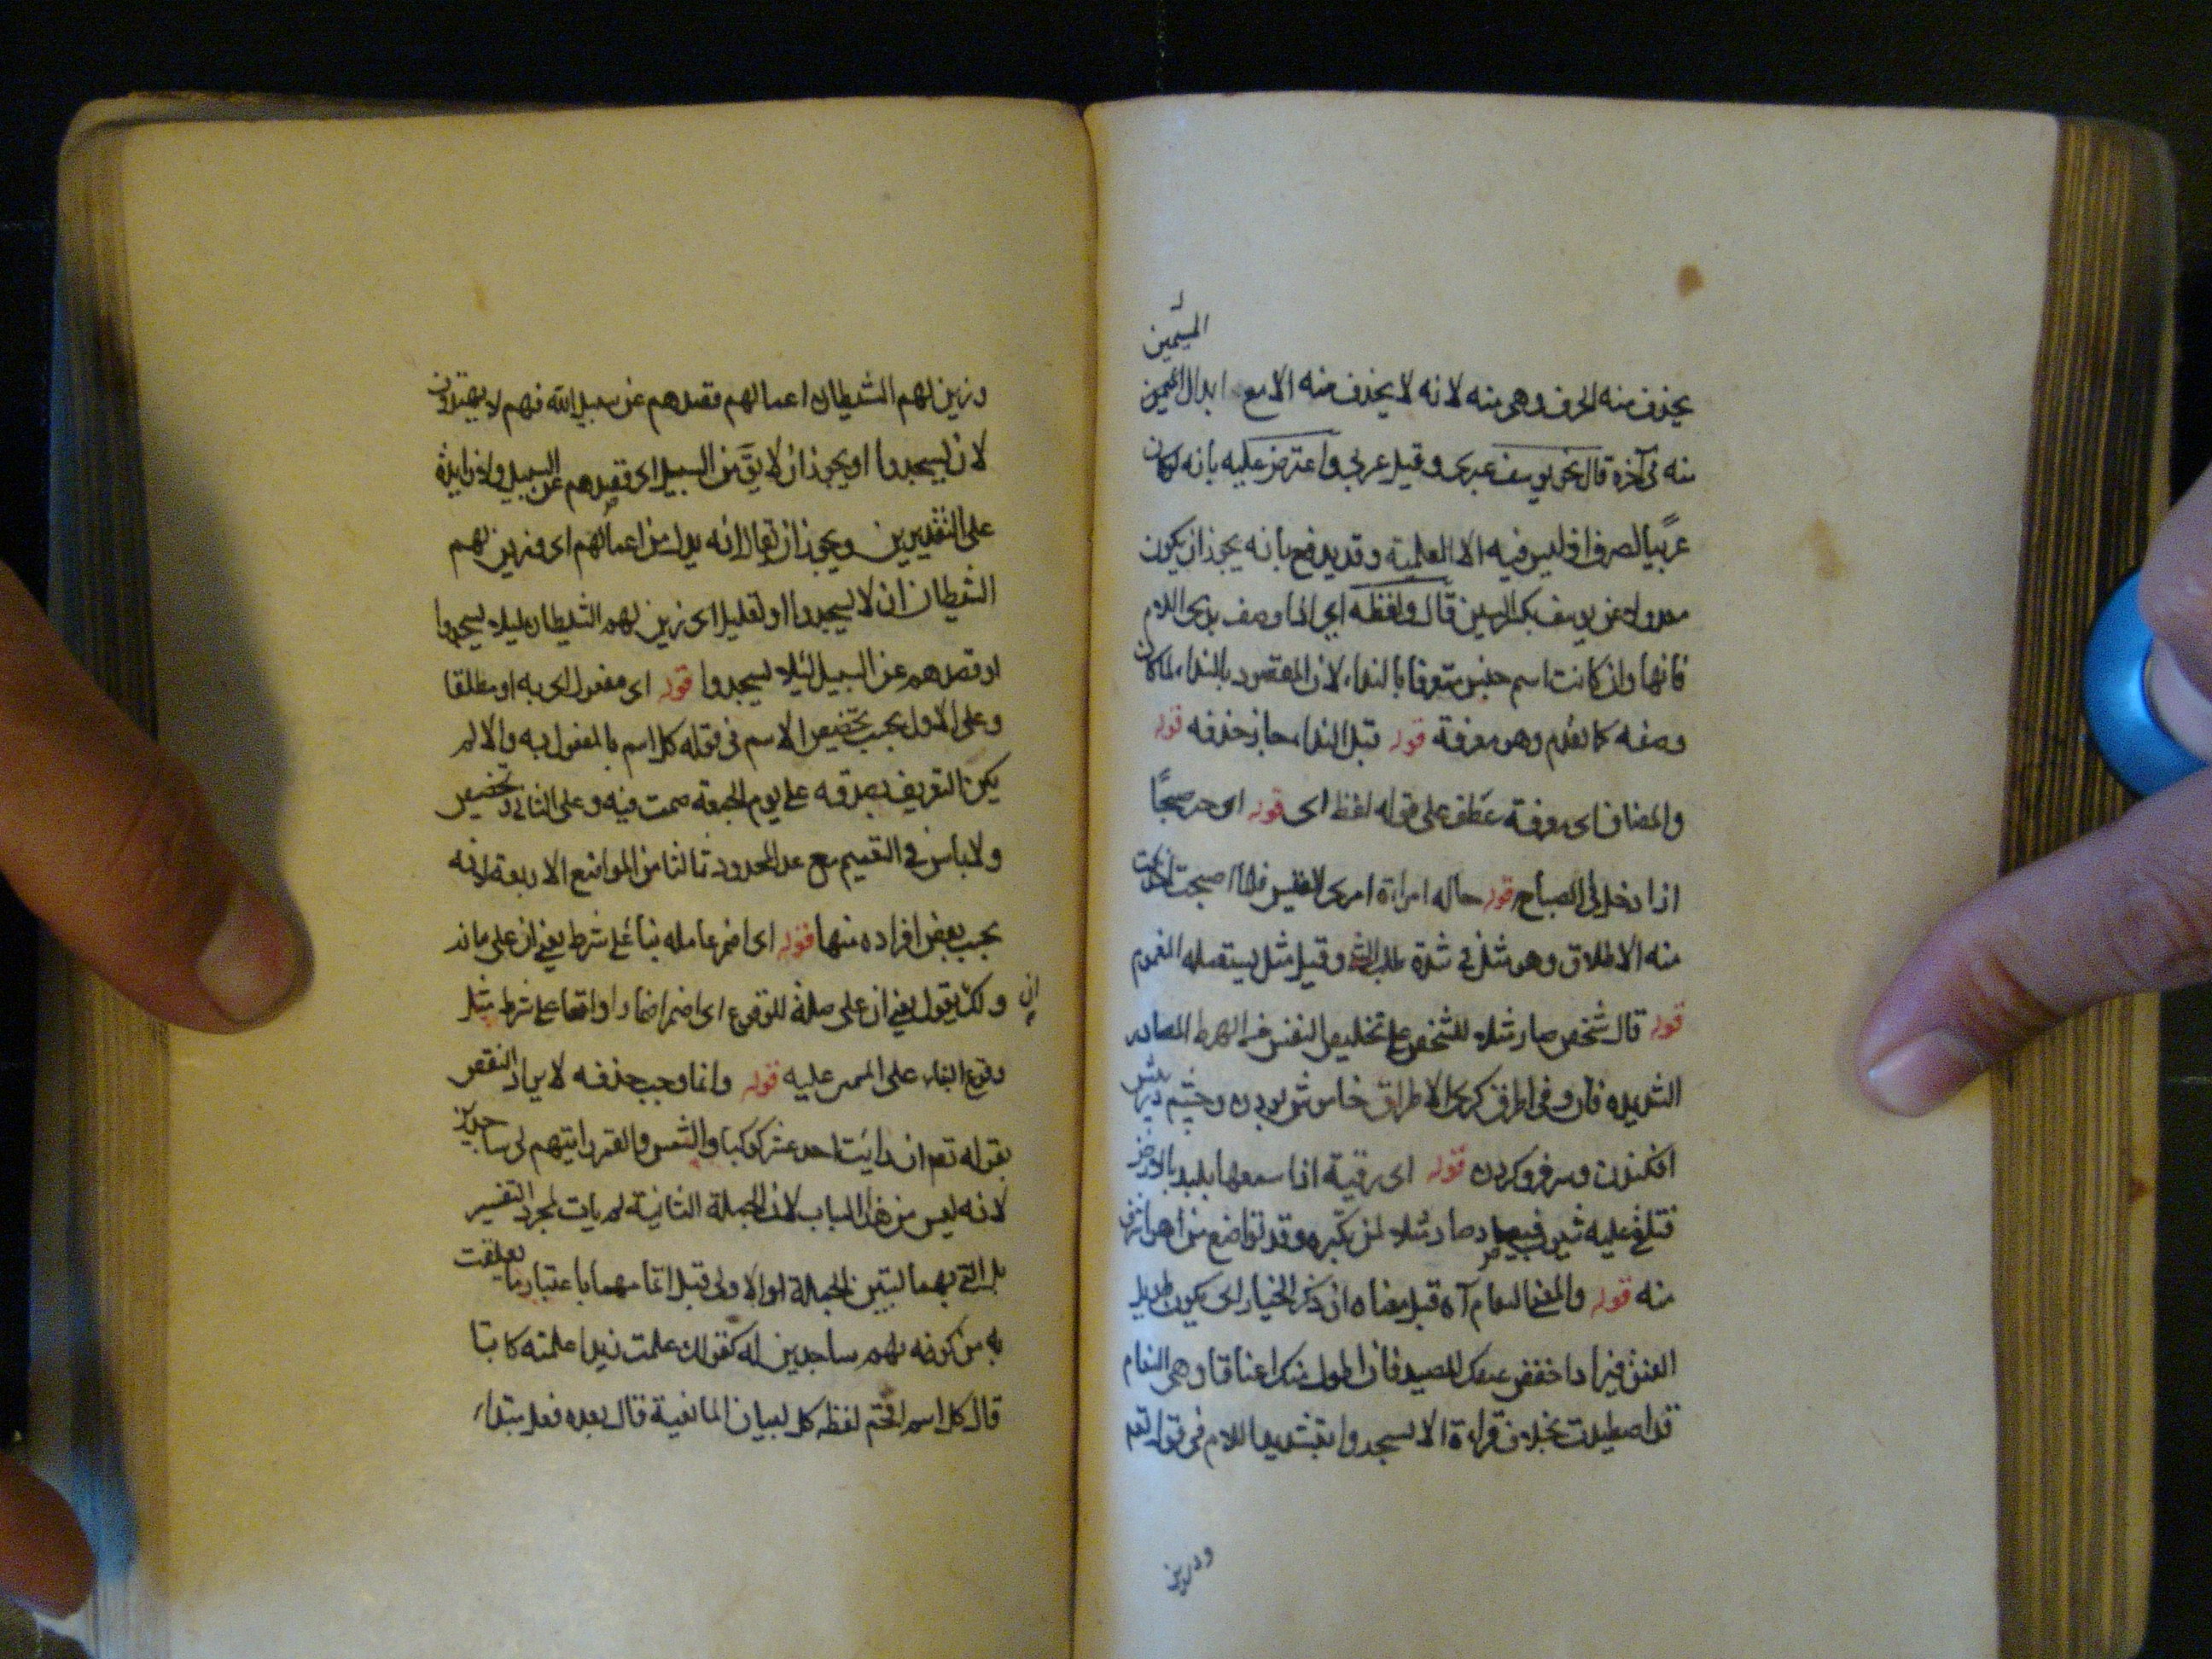 الميمين
يحذف منه الحرف وهى منه لانه لا يحذف منه الا مع ابدال الميمين
منه فى آخره قال نحو يوسف عبرى وقيل عربى واعترض عليه بانه لو كان
عربيا لصرف اذ ليس فيه الا العلمية وقد يدفع بانه يجوز ان يكون
معدولا عن يوسف بكسر السين قال ولفظة اي اذا وصف بذى اللام
فانها وان كانت اسم جنس متعرفا بالنداء لان المقصود بالنداء لما كان
وصفه كما تقدم وهو معرفة قوله قبل النداء جاز حذفه قوله
والمضاف اى معرفة عطف على قوله لفظ اى قوله اى صر صبحًا
اذا دخل فى الصباح قوله حاله امراءة امرى القيس فلما اصبحت
منه الاطلاق وهو مثل فى شدة طلب الشئ وقيل مثل يستعمله المغموم
قوله قال شخص صار مثلا للشخص على تخليص النفس من
الشديدة قال وفى اطرق كرى الاطراق خاموش بودن وچشم در پيش
افكندن وسر فرو كردن قوله اى رقية اذا سمعها يلبد بالارض
فيلقى عليه ثوب فيصاد صار مثلا لمن تكبر وقد تواضع من اهو اشرف
منه قوله والمعنى النعام آه قيل معناه ان ذكر الخيار الى يكون طويل
العنق فيزاد اخفض عنقك للصيد فان اطول منك اعناقا وهى النعام
قد اصطيدت بخلاف قراءة الا يسجدوا بتشديد اللام فى قوله تعم
وزين
وزين لهم الشيطان اعمالهم فصدهم عن سبيل الله فهم لا يهتدون
لان يسجدوا او يجوز ان لا بقى من السبيل اى فصدهم عن السبيل ولا زايدة
على التقديرين ويجوز ان يقال انه بدل من اعمالهم اى وزين لهم
الشيطان ان لا يسجدوا او تعليل اى زين لهم الشيطان لئلا يسجدوا
او فصدهم عن السبيل لئلا يسجدوا قوله اى مفعول اى به او مطلقا
وعلى الاول يجب تخصيص الاسم فى قوله كل اسم بالمفعول به والا لم
يكن التعريف بصدقه على يوم الجمعة صمت فيه وعلى الثانى وتخصيص
ولا باس فى التقسيم مع عد المحدود ثالثا من المواضع الاربعة لانه
يجب بعض افراده منها قوله اى اضمر عامله بناء على شرط يعنى ان على ما
ولك ان يقول يعنى ان على صلة للوقوع اى اضمر اضمارا واقعا على شرط مثل
وقوع البناء على المبنى عليه قوله وانما وجب حذفه لا يراد النقص
بقوله تعم انى رايت احد عشر كوكبا والشمس والقمر رايتهم لى ساجدين
لانه ليس من هذا الباب لان الجملة الثانية لم يات لمجرد التفسير
بل اتى بهما لتبين الجملة اولا ولى قبل اتمامهما باعتبار ما تعلقت
به من كونه لهم ساجدين له كقولك علمت زيدا علمته كاتبا
قال كل اسم اقحم لفظه كل لبيان المانعية قال بعده فعل مبتداء